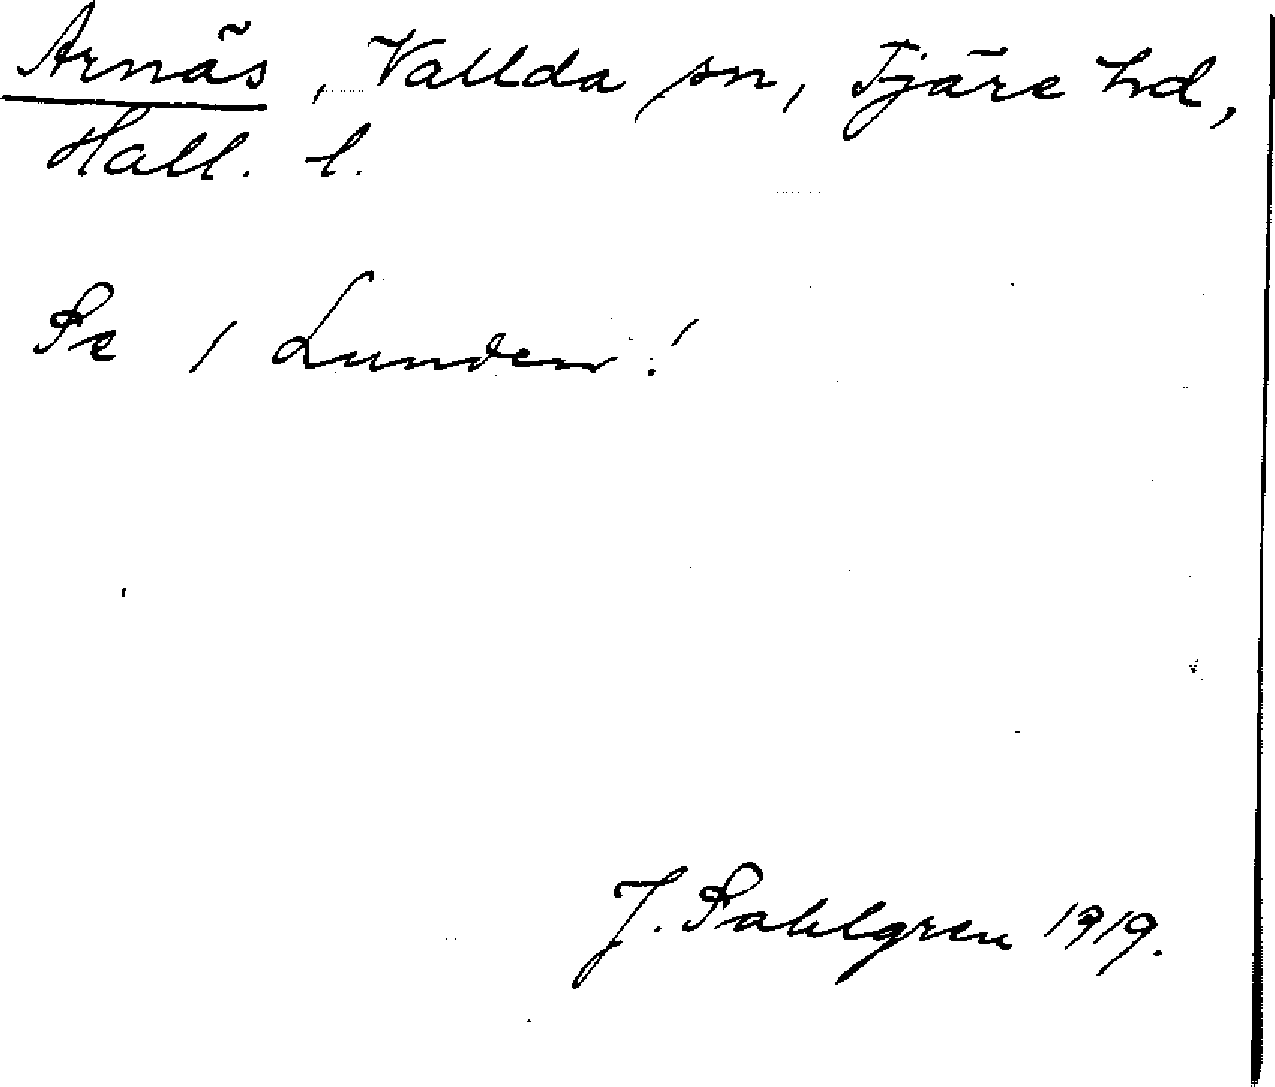 Arnäs, Vallda sn, Fjäre hd,
Hall. l.
Se / Lunden!
J. Sahlgren 1919.